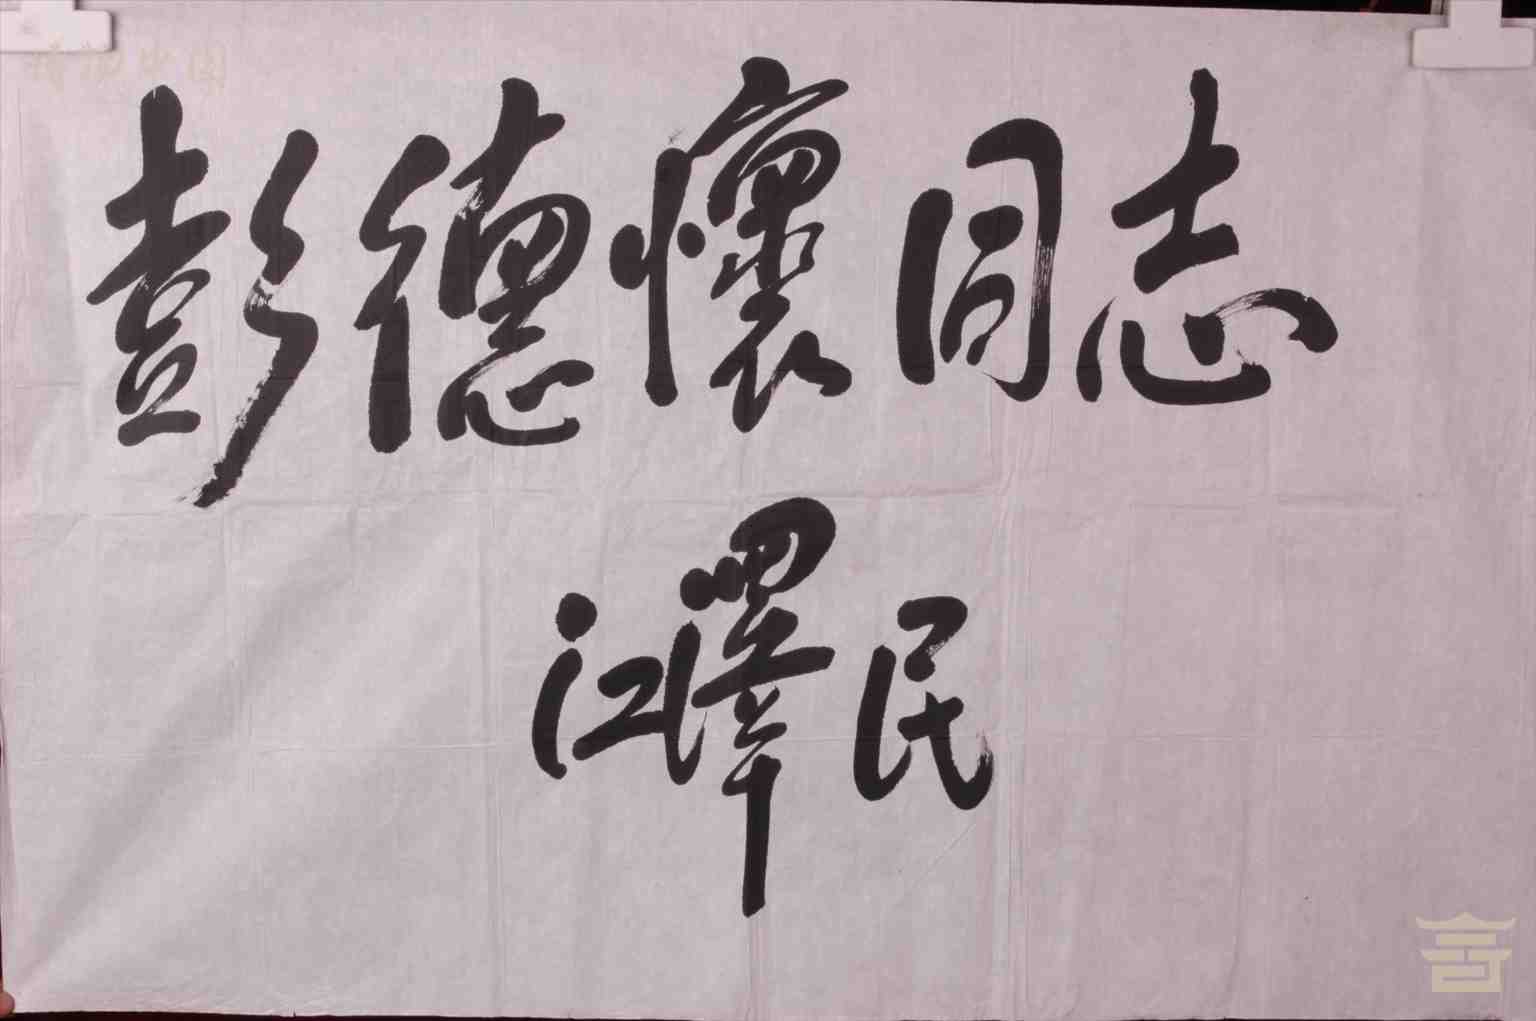 彭德懷同志
江澤民